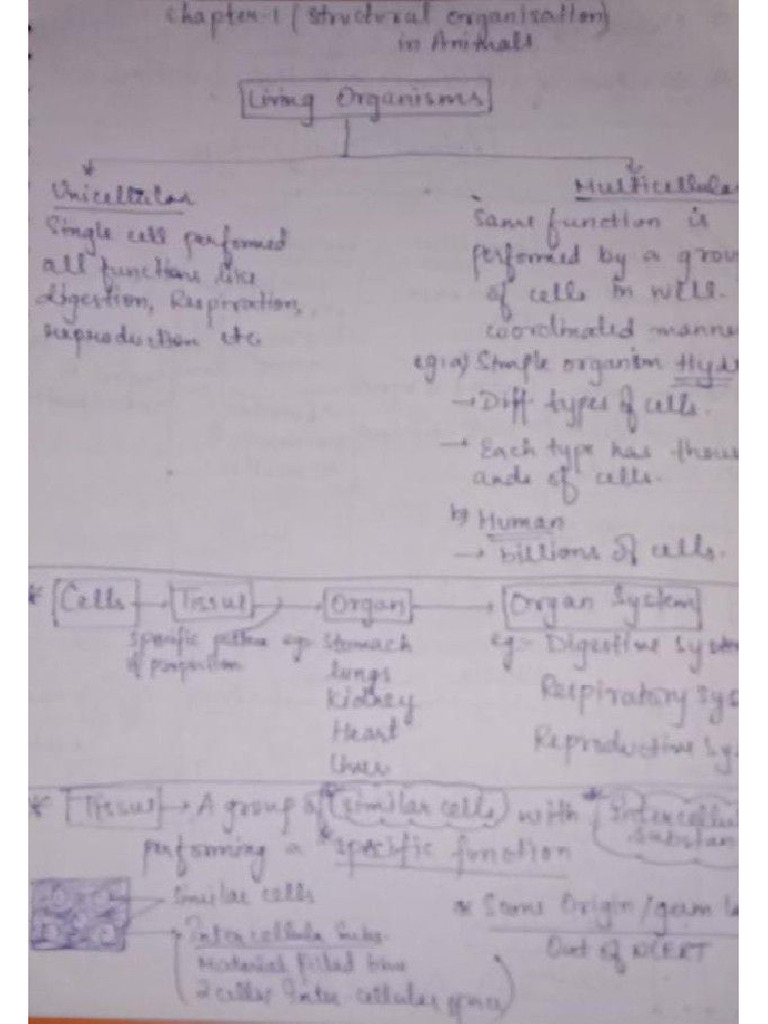 Chapter-1 (Structural Organisation)
in Animals
Living Organisms
Unicellular
Single cell performed
all functions like
digestion, Respiration,
reproduction etc.
Multicellula
Same function is
performed by a grou
of cells in well-
coordinated manne
eg:a) Simple organism Hyd
→ Diff types of cells.
→ Each type has thous
ands of cells.
b) Human
→ billions of cells.
* Cells → Tissue → Organ → Organ System
specific
of
eg:- Stomach
Lungs
Kidney
Heart
Liver
eg:- Digestive Syste
Respiratory Sys
Reproductive Sy
* Tissue → A group of similar cells with * Intercellul
Substan
performing a * specific function
Similar cells
→ Intercellula Subs.
(Material filled b/w
2 cells/Inter cellular spaces)
* Same Origin/germ la
Out of NCERT